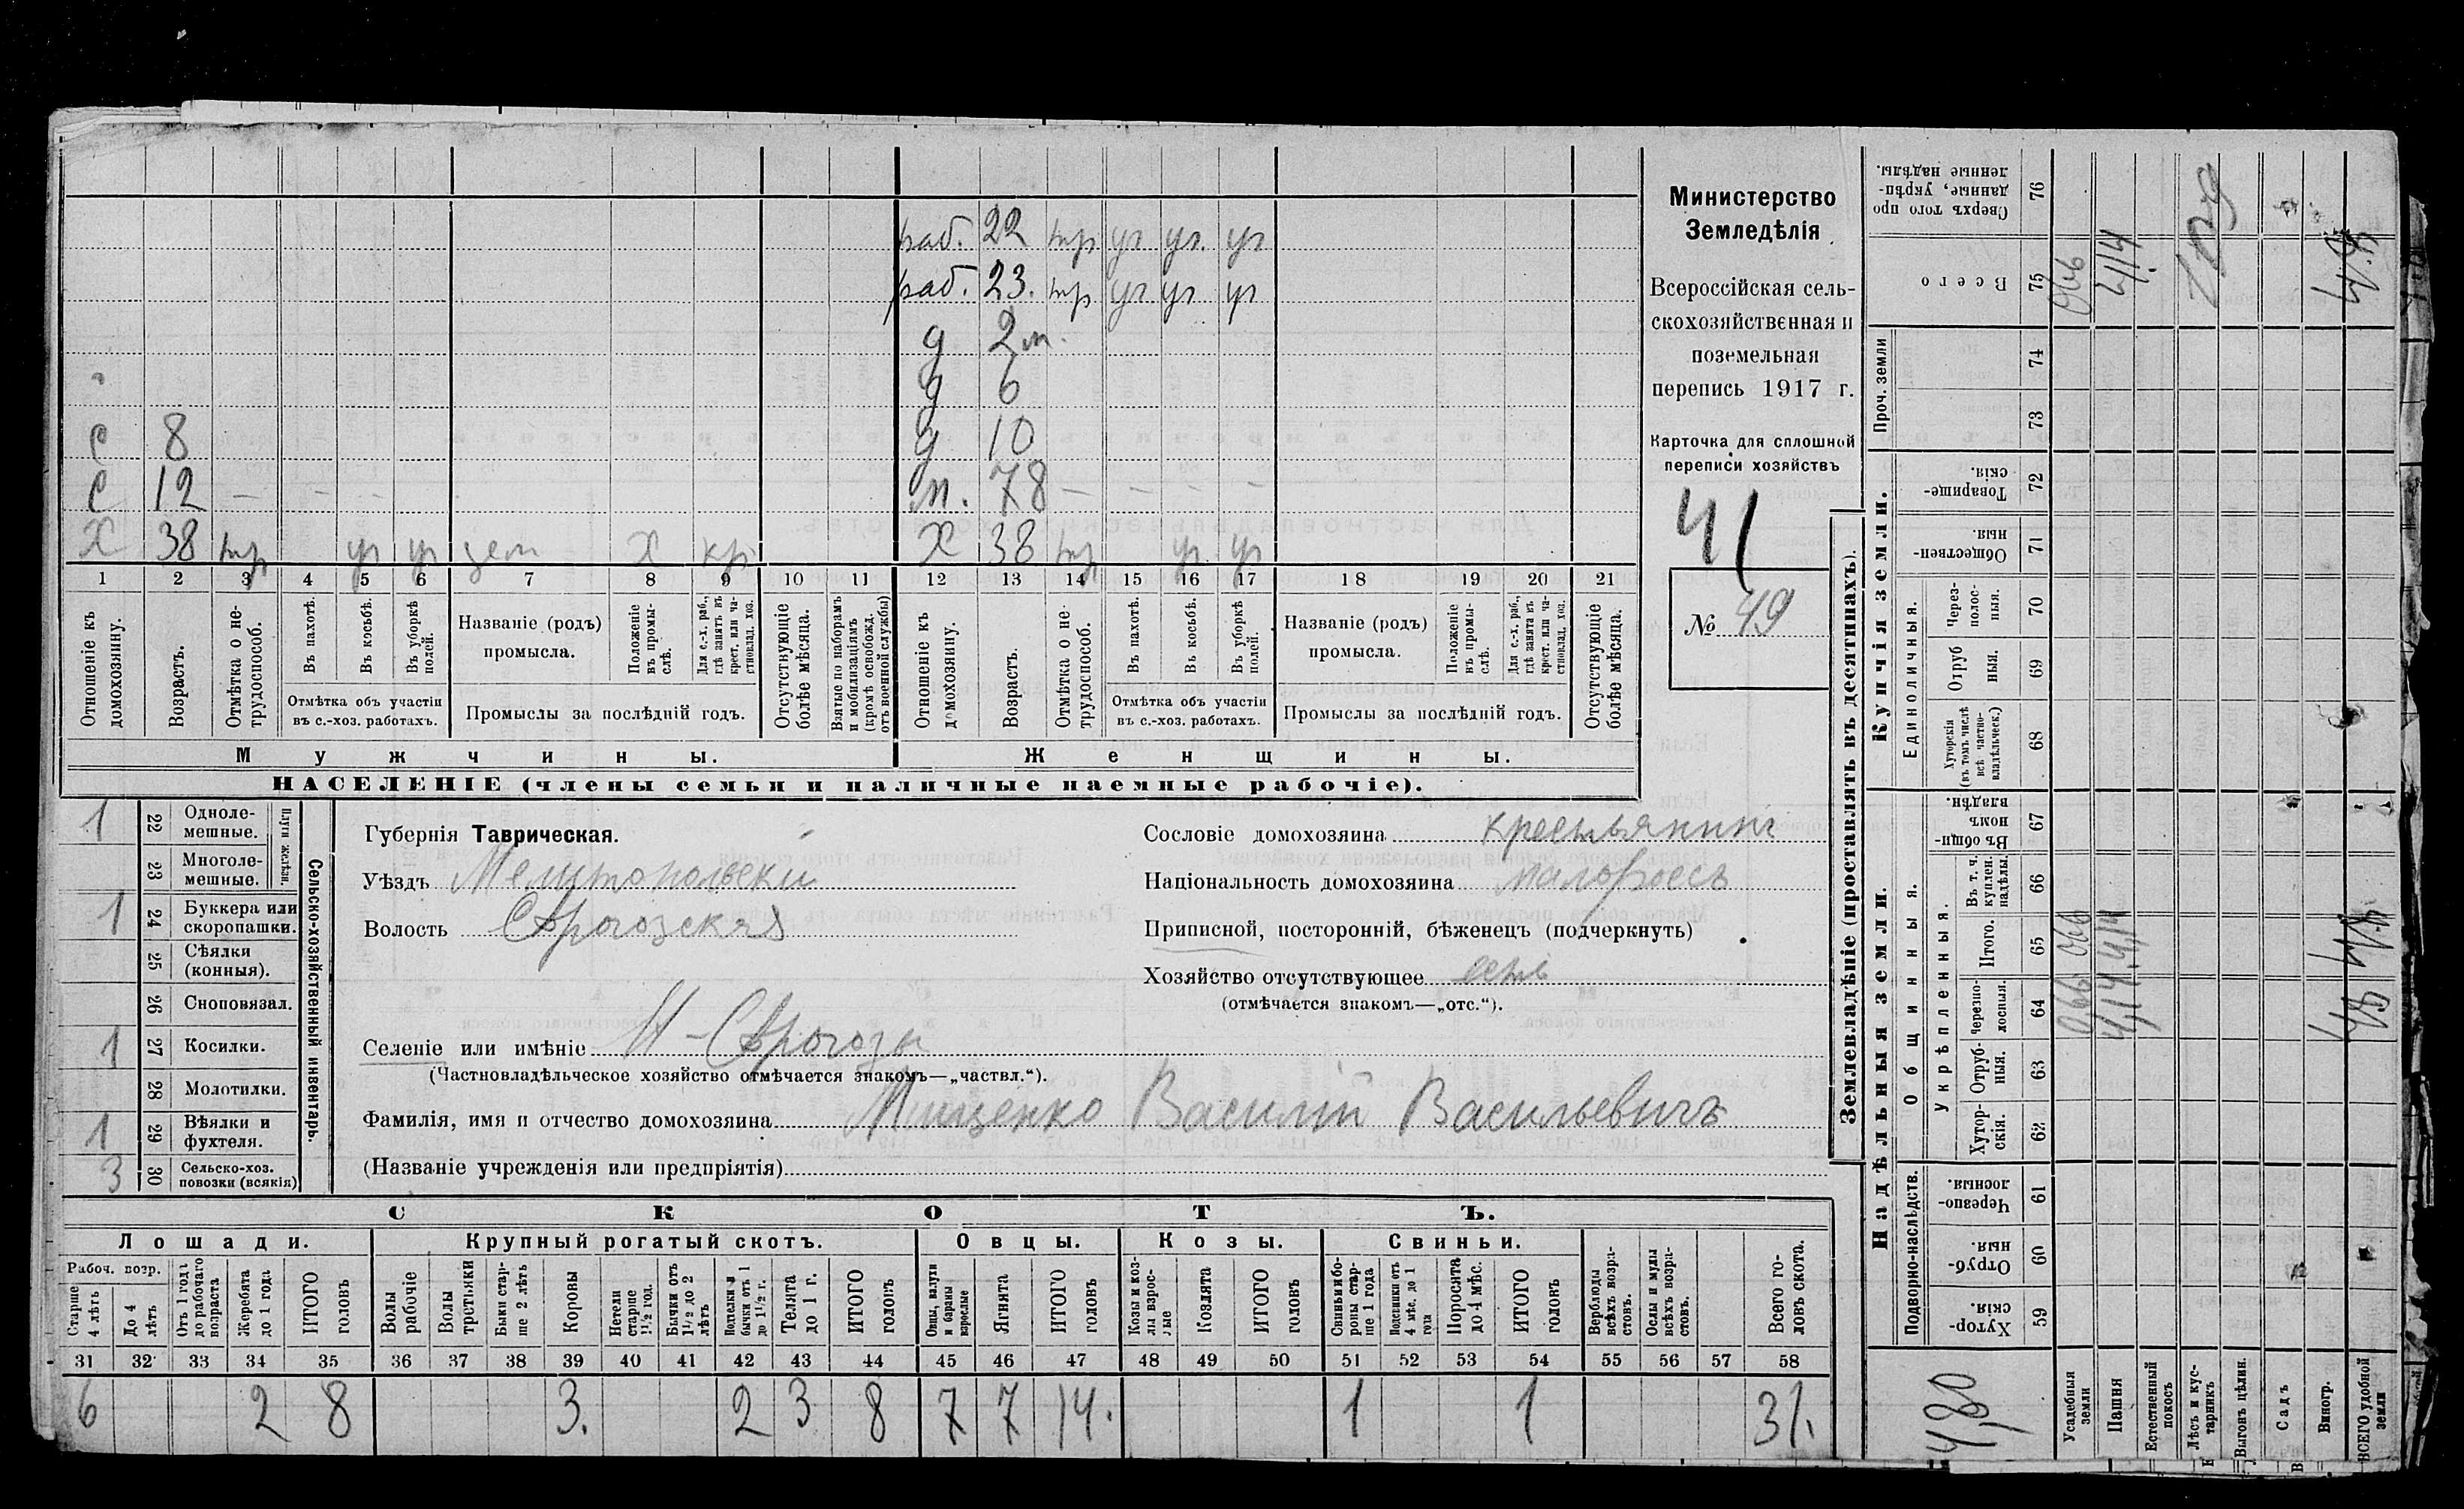 раб. 22 тр уг уг. уг
раб. 23. тр уг уг уг
д 2 м.
д 6
с 8 д 10
с 12 — — — м. 78 — — — —
Х 38 тр уг уг зем Х кр Х 38 тр уг уг
1 2 3 4 5 6 7 8 9 10 11 12 13 14 15 16 17 18 19 20 21
Отношеніе къ домохозяину.
Возрастъ.
Отмѣтка о не-трудоспособ.
Въ пахотѣ.
Въ косьбѣ.
Въ уборкѣ полей.
Отмѣтка объ участіи въ с.-хоз. работахъ.
Названіе (родъ) промысла.
Положеніе въ промы-слѣ.
Для с.-х. раб., гдѣ занятъ въ крест. или ча-стновлад. хоз.
Промыслы за послѣдній годъ.
Отсутствующіе болѣе мѣсяца.
Взятые по наборамъ и мобилизаціямъ (кромѣ освобожд. отъ военной службы)
Отношеніе къ домохозяину.
Возрастъ.
Отмѣтка о не-трудоспособ.
Въ пахотѣ.
Въ косьбѣ.
Въ уборкѣ полей.
Отмѣтка объ участіи въ с.-хоз. работахъ.
Названіе (родъ) промысла.
Положеніе въ промы-слѣ.
Для с.-х. раб., гдѣ занята въ крест. или ча-стновлад. хоз.
Промыслы за послѣдній годъ.
Отсутствующіе болѣе мѣсяца.
Мужчины. Женщины.
НАСЕЛЕНІЕ (члены семьи и наличные наемные рабочіе).
Министерство
Земледѣлія
Всероссійская сель-
скохозяйственная и
поземельная
перепись 1917 г.
Карточка для сплошной
переписи хозяйствъ
41
№ 49
Сельско-хозяйственный инвентарь.
Плуги желѣзн.
1 22 Одноле-мешные.
23 Многоле-мешные.
1 24 Буккера или скоропашки.
25 Сѣялки (конныя).
26 Сноповязал.
1 27 Косилки.
28 Молотилки.
1 29 Вѣялки и фухтеля.
3 30 Сельско-хоз. повозки (всякія)
Губернія Таврическая.
Уѣздъ Мелитопольскій
Волость
Селеніе или имѣніе
(Частновладѣльческое хозяйство отмѣчается знакомъ—„частвл.“).
Фамилія, имя и отчество домохозяина Мищенко Василій Васильевичъ
(Названіе учрежденія или предпріятія)
Сословіе домохозяина крестьянинъ
Національность домохозяина малороссъ
Приписной, посторонній, бѣженецъ (подчеркнуть)
Хозяйство отсутствующее
(отмѣчается знакомъ—„отс.“).
СКОТЪ.
Лошади. Крупный рогатый скотъ. Овцы. Козы. Свиньи.
Рабоч. возр.
Старше 4 лѣтъ
До 4 лѣтъ
Отъ 1 года до рабочаго возраста
Жеребята до 1 года
ИТОГО головъ
Волы рабочіе
Волы третьяки
Быки стар-ше 2 лѣтъ
Коровы
Нетели старше 1½ год.
Бычки отъ 1½ до 2 лѣтъ
Телята до 1 г.
ИТОГО головъ
Овцы, валухи и бараны взрослые
Ягнята
ИТОГО головъ
Козы и коз-лы взрос-лые
Козлята
ИТОГО головъ
Свиньи и бо-ровы стар-ше 1 года
Подсвинки отъ 4 мѣс. до 1 года
Поросята до 4 мѣс.
ИТОГО головъ
Верблюды всѣхъ возра-стовъ.
Ослы и мулы всѣхъ возра-стовъ.
Всего го-ловъ скота.
31 32 33 34 35 36 37 38 39 40 41 42 43 44 45 46 47 48 49 50 51 52 53 54 55 56 57 58
6 2 8 3. 2 3 8 7 7 14. 1 1 31.
Землевладѣніе (проставлять въ десятинахъ).
Купчія земли.
Проч. земли
Единоличныя.
Сверхъ того про данные, укрѣп-ленные надѣлы. 76
Всего 75
74
73
Товарище-скія. 72
Обществен-ныя. 71
Через-полос-ныя. 70
Отруб ныя. 69
Хуторскія (въ томъ числѣ всѣ частно-владѣльческ.) 68
Надѣльныя земли.
Общинныя.
Укрѣпленныя.
Въ общи номъ владѣн. 67
Въ т. ч. куплен. надѣлы. 66
Итого. 65
Черезпо-лосныя. 64
Отруб-ныя. 63
Хутор-скія. 62
Подворно-наслѣдств.
Черезпо-лосныя. 61
Отруб-ныя. 60
Хутор-скія. 59
Усадебныя земли 066 066 066
Пашня 4,14 4,14 4,14
Естественный покосъ
Лѣсъ и кус-тарникъ
Выгонъ цѣлин.
Садъ
Виногр.
ВСЕГО удобной земли 4.8 4.8 4.8
4,80